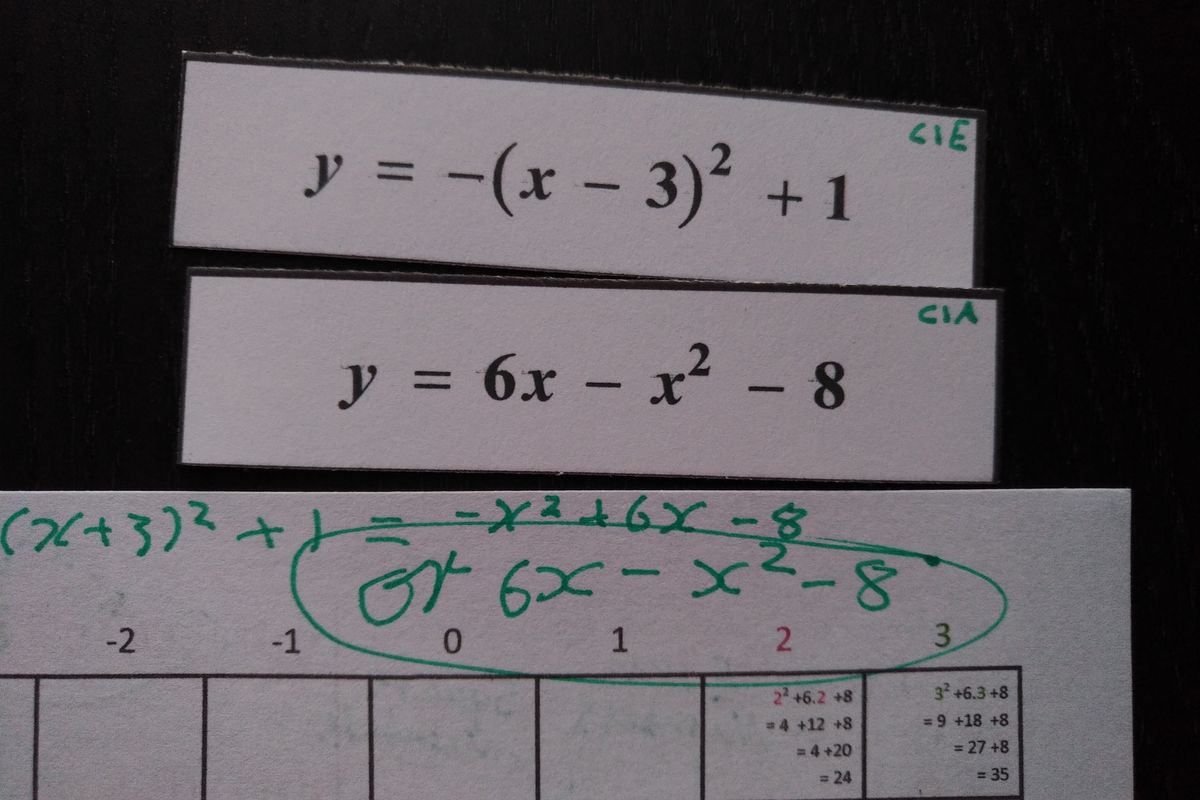 C1E
y = -(x - 3)² + 1
C1A
y = 6x - x² - 8
(x+3)² + 1 = -x² + 6x - 8
or 6x - x² - 8
-2 -1 0 1 2 3
2² +6.2 +8 3² +6.3 +8
= 4 +12 +8 = 9 +18 +8
= 4 +20 = 27 +8
= 24 = 35